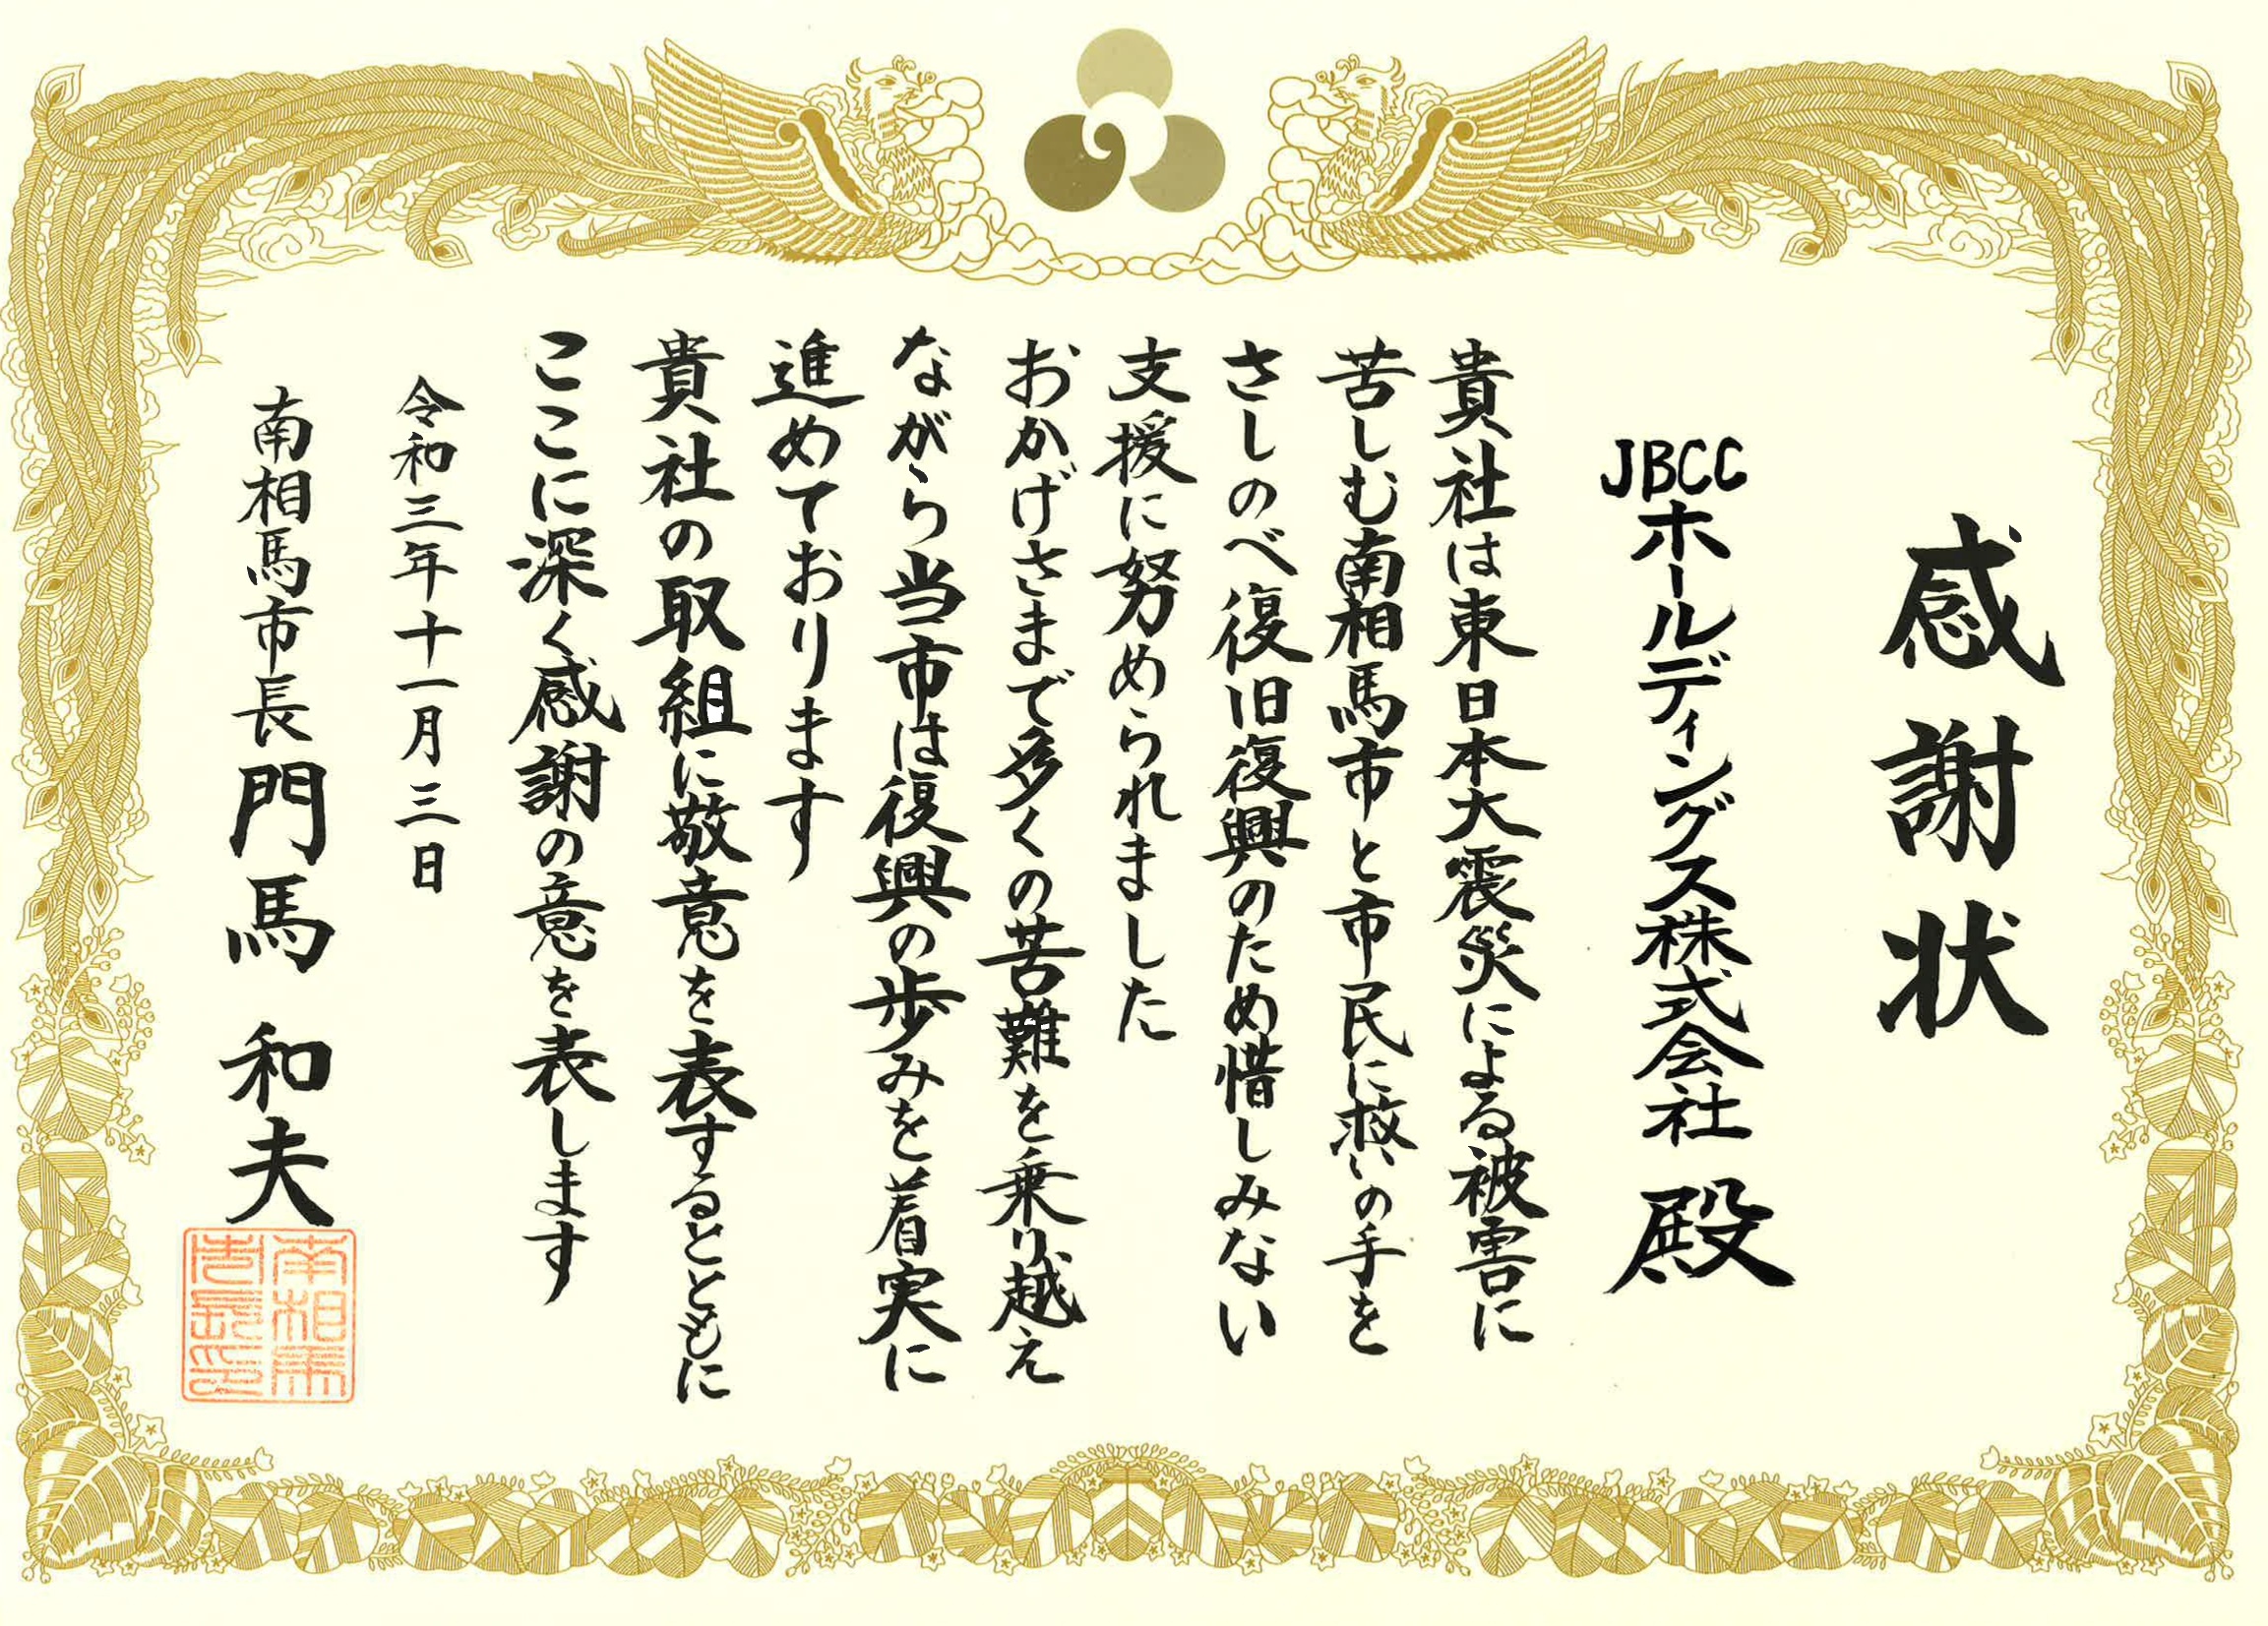 感謝状
JBCCホールディングス株式会社 殿
貴社は東日本大震災による被害に
苦しむ南相馬市と市民に救いの手を
さしのべ復旧復興のため惜しみない
支援に努められました
おかげさまで多くの苦難を乗り越え
ながら当市は復興の歩みを着実に
進めております
貴社の取組に敬意を表するとともに
ここに深く感謝の意を表します
令和三年十一月三日
南相馬市長 門馬 和夫
南相馬
市長印